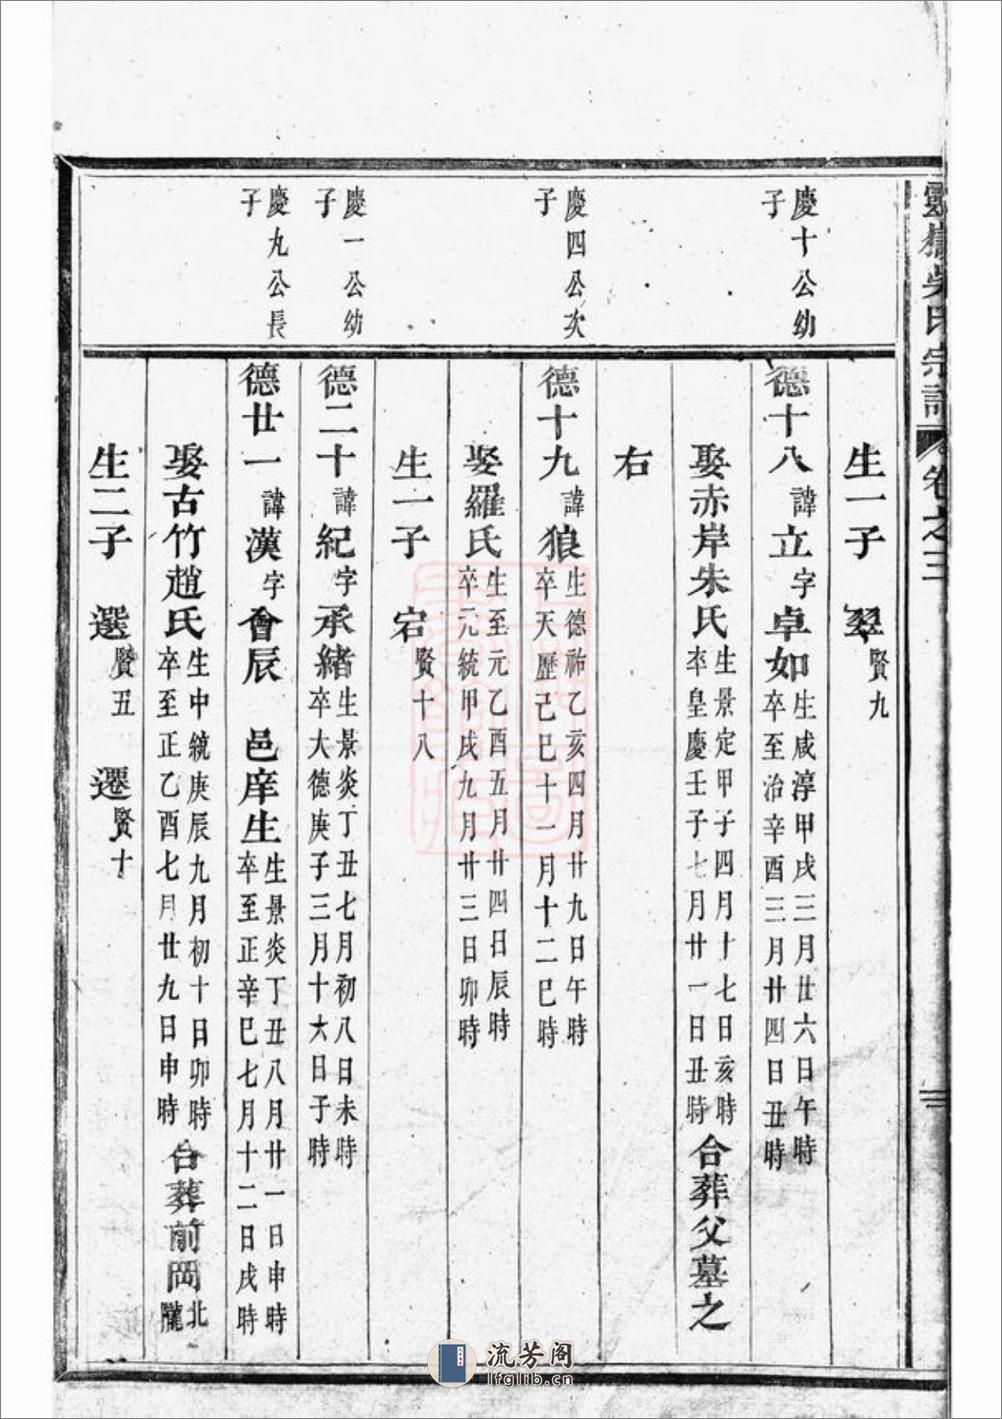 嶽吳氏宗譜 卷之三
生一子 翠賢九
慶十公幼子
德十八諱立字卓如生咸淳甲戌三月廿六日午時卒至治辛酉三月廿四日丑時
娶赤岸朱氏生景定甲子四月十七日亥時卒皇慶壬子七月廿一日丑時合葬父墓之
右
慶四公次子
德十九諱狼生德祐乙亥四月廿九日午時卒天歷己巳十一月十二巳時
娶羅氏生至元乙酉五月廿四日辰時卒元統甲戌九月廿三日卯時
生一子 宕賢十八
慶一公幼子
德二十諱紀字承緒生景炎丁丑七月初八日未時卒大德庚子三月十六日子時
慶九公長子
德廿一諱漢字會辰 邑庠生生景炎丁丑八月廿一日申時卒至正辛巳七月十二日戌時
娶古竹趙氏生中統庚辰九月初十日卯時卒至正乙酉七月廿九日申時合葬前岡北隴
生二子 選賢五 遷賢十
流芳阁
lfglib.cn